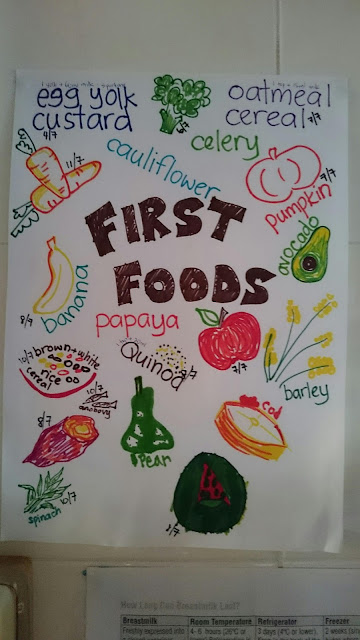 egg yolk
custard
9/7
oatmeal
cereal
7/7
cauliflower
celery
11/7
9/7
pumpkin
FIRST
FOODS
avocado
banana
8/9
papaya
Quinoa
7/7
barley
10/7 brown+white
rice
cereal
10/7
anchovy
8/7
cod
pear
spinach
10/7
How Long Can Breastmilk Last?
Breastmilk Room Temperature Refrigerator Freezer
Freshly expressed into 4-6 hours (26°C or 3 days (4°C or lower). 2 weeks